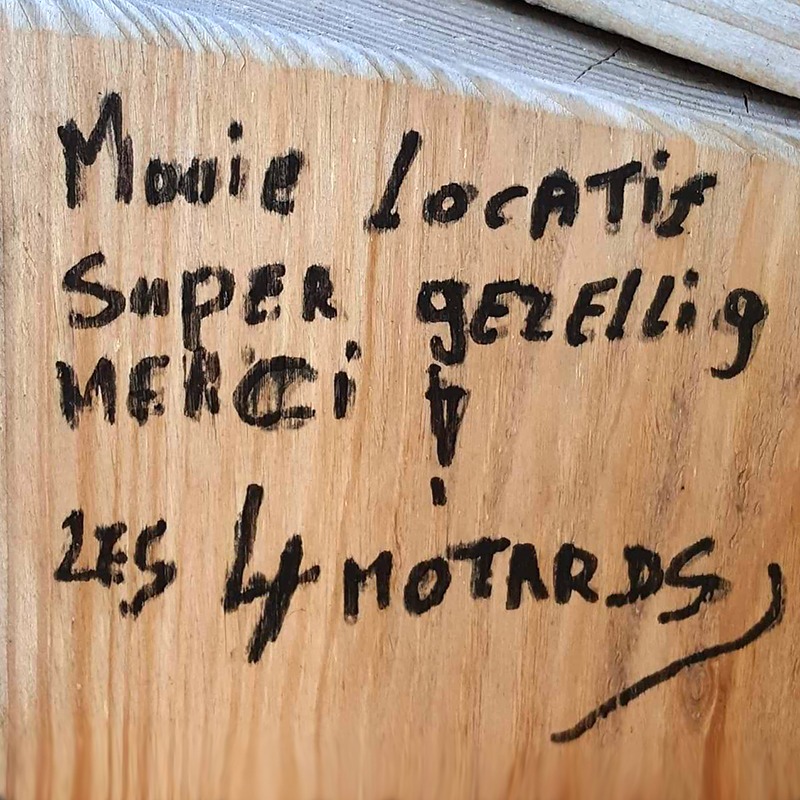 Mouie LOCATIE
SUPER gEZEllig
MERCi !
LES 4 MOTARDS